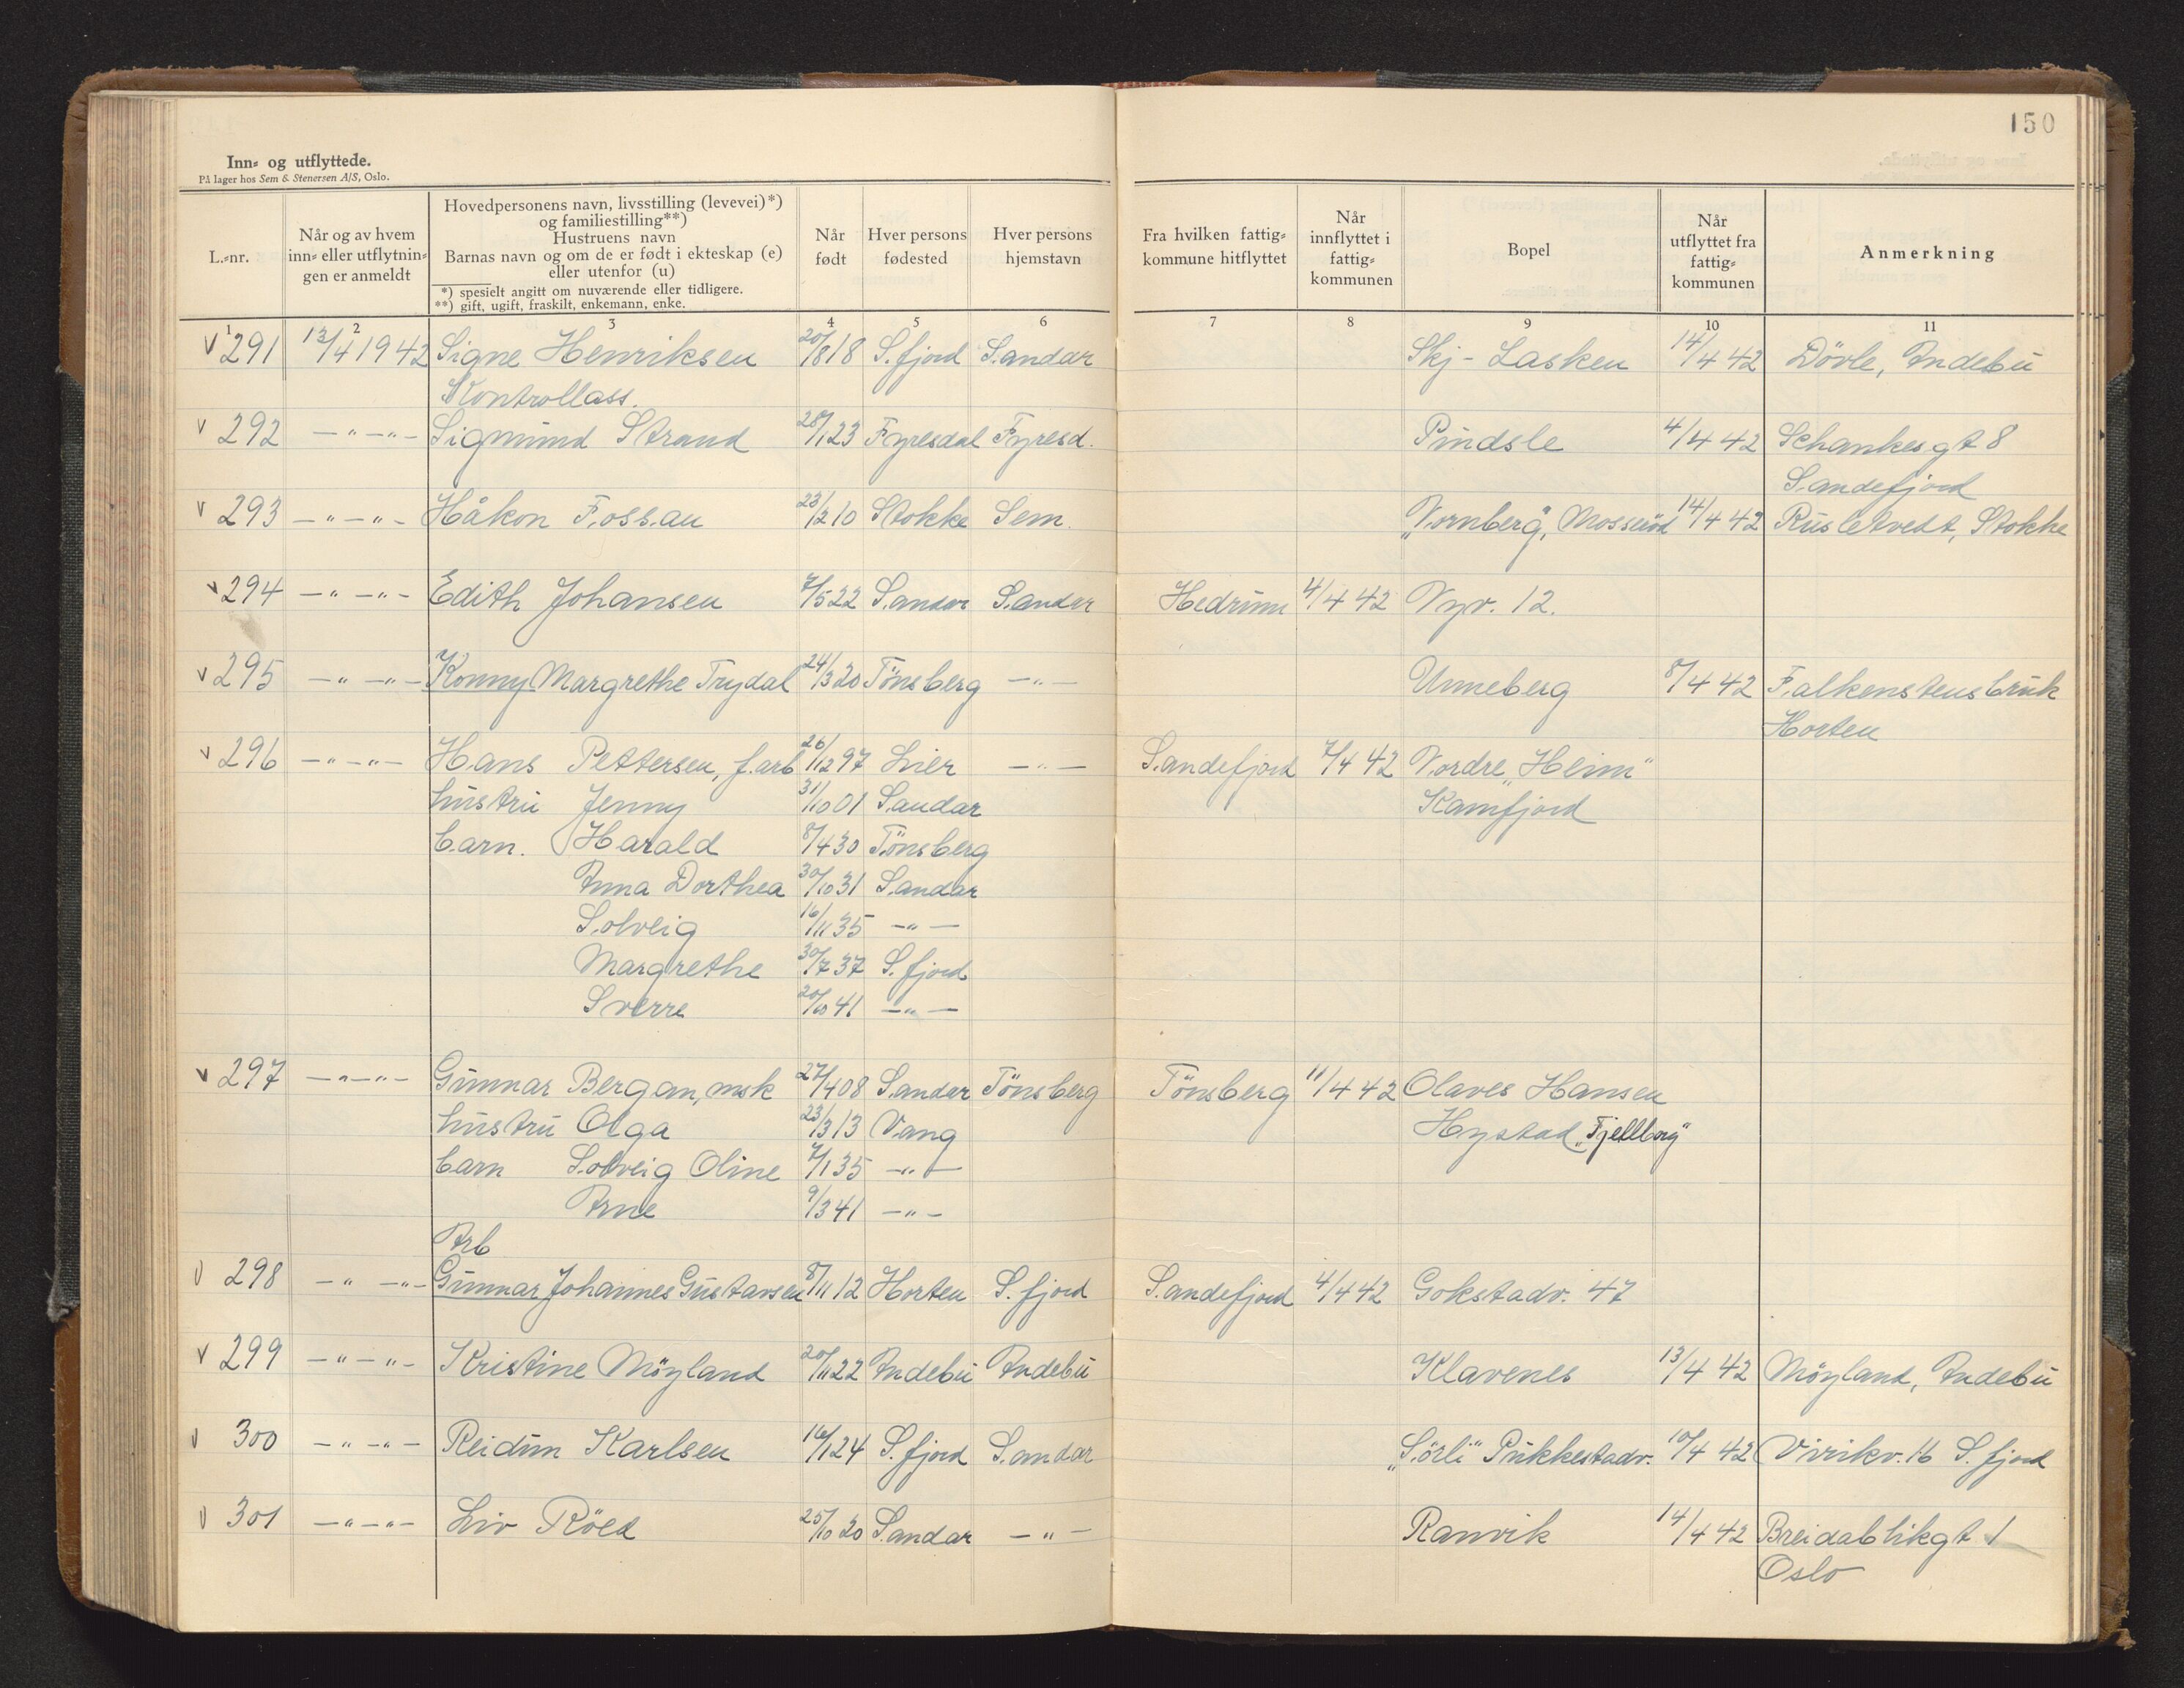 150
Inn- og utflyttede.
På lager hos Sem & Stenersen A/S, Oslo.
L.-nr.
Når og av hvem inn- eller utflytningen er anmeldt
Hovedpersonens navn, livsstilling (levevei)*)
og familiestilling**)
Hustruens navn
Barnas navn og om de er født i ekteskap (e)
eller utenfor (u)
*) spesielt angitt om nuværende eller tidligere.
**) gift, ugift, fraskilt, enkemann, enke.
Når født
Hver persons fødested
Hver persons hjemstavn
Fra hvilken fattig-kommune hitflyttet
Når innflyttet i fattig-kommunen
Bopel
Når utflyttet fra fattig-kommunen
Anmerkning
1 2 3 4 5 6 7 8 9 10 11
V 291 13/4 1942 Signe Henriksen 20/8 18 S.fjord Sandar Skj-Lasken 14/4 42 Dövle, Andebu
Kontrollass.
V 292 -"-"- Sigmund Strand 28/1 23 Fyresdal Fyresd. Pindsle 4/4 42 Schankesgt 8
Sandefjord
V 293 -"-"- Håkon Fossan 23/2 10 Stokke Sem. "Vornberg", Mosserød 14/4 42 Rusletvedt, Stokke
V 294 -"-"- Edith Johansen 7/5 22 Sandar Sandar Hedrum 4/4 42 Nyv. 12.
V 295 -"-"- Konny Margrethe Trydal 24/3 20 Tönsberg -"- Unneberg 8/4 42 Falkenstensbruk
Horten
V 296 -"-"- Hans Pettersen, f.arb 26/12 97 Lier -"- Sandefjord 7/4 42 Nordre "Heim"
hustru Jenny 31/10 01 Sandar Kamfjord
barn. Harald 8/4 30 Tönsberg
Anna Dorthea 30/10 31 Sandar
Solveig 16/11 35 -"-
Margrethe 30/7 37 S.fjord
Sverre 20/10 41 -"-
V 297 -"-"- Gunnar Bergan, msk 27/4 08 Sandar Tönsberg Tönsberg 11/4 42 Olaves Hansen
hustru Olga 23/3 13 Vang Hystad "Fjellborg"
barn Solveig Oline 7/1 35 -"-
Arne 9/3 41 -"-
Arb
V 298 -"-"- Gunnar Johannes Gustavsen 8/11 12 Horten S.fjord Sandefjord 4/4 42 Gokstadv. 47
V 299 -"-"- Kristine Möyland 20/11 22 Andebu Andebu Klavenes 13/4 42 Möyland, Andebu
V 300 -"-"- Reidun Karlsen 16/1 24 S.fjord Sandar "Sörli" Pukkestadv. 10/4 42 Virikv. 16 S.fjord
V 301 -"-"- Liv Röed 25/10 20 Sandar -"- Ranvik 14/4 42 Breidablikgt 1
Oslo